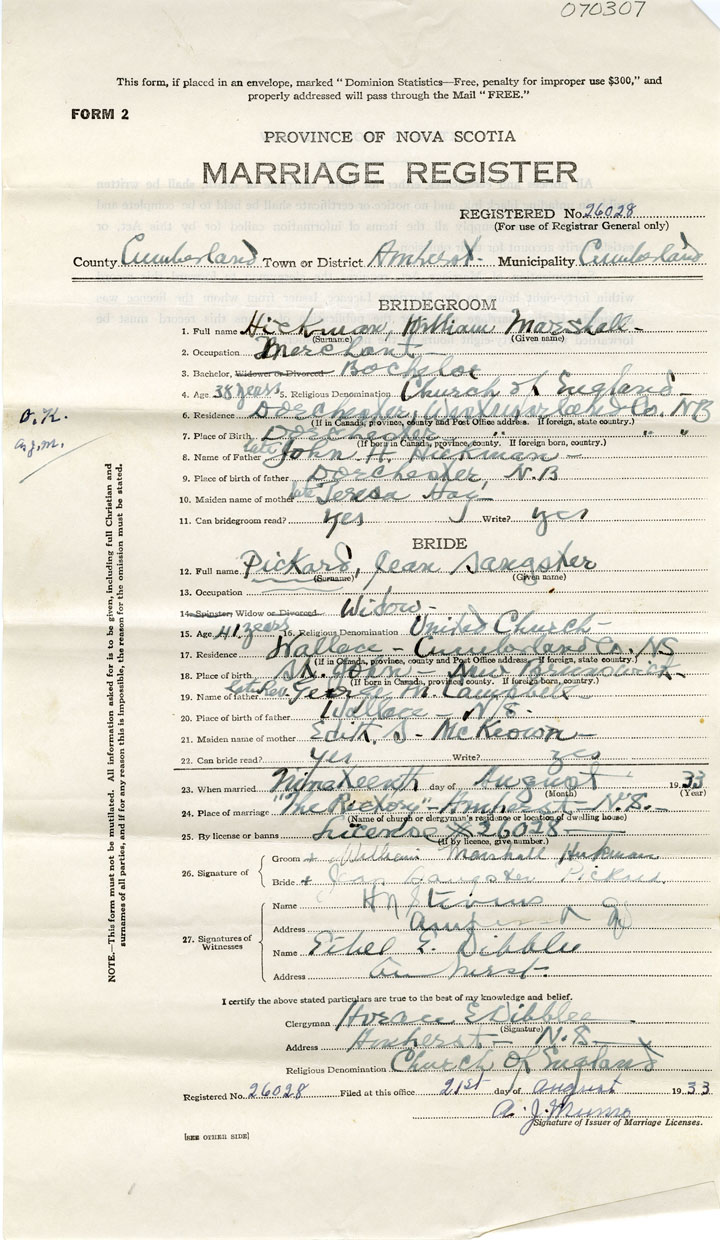 070307
This form, if placed in an envelope, marked "Dominion Statistics—Free, penalty for improper use $300," and
properly addressed will pass through the Mail "FREE."
FORM 2
PROVINCE OF NOVA SCOTIA
MARRIAGE REGISTER
REGISTERED No. 26028
(For use of Registrar General only)
County Cumberland Town or District Amherst - Municipality Cumberland
BRIDEGROOM
1. Full name Hickman, William Marshall -
(Surname) (Given name)
2. Occupation Merchant -
3. Bachelor, Widower or Divorced Bachelor
4. Age 38 years 5. Religious Denomination Church of England -
6. Residence Dorchester, Westmorland Co. NB
(If in Canada, province, county and Post Office address. If foreign, state country.)
7. Place of Birth Dorchester " " "
(If born in Canada, province, county. If foreign born, country.)
8. Name of Father late John H. Hickman -
9. Place of birth of father Dorchester, N.B
10. Maiden name of mother late Teresa
11. Can bridegroom read? yes Write? yes
BRIDE
12. Full name Pickard, Jean Sangster
(Surname) (Given name)
13. Occupation
14. Spinster, Widow or Divorced Widow -
15. Age 41 years 16. Religious Denomination United Church -
17. Residence Wallace - Cumberland Co. NS
(If in Canada, province, county and Post Office address. If foreign, state country.)
18. Place of birth St. John - New Brunswick -
(If born in Canada, province, county. If foreign born, country.)
19. Name of father late Rev. George M. Campbell -
20. Place of birth of father Wallace - N.S.
21. Maiden name of mother Edith S - McKeown -
22. Can bride read? yes Write? yes
23. When married Nineteenth day of August 1933
(Month) (Year)
24. Place of marriage "The Rectory" - Amherst - N.S. -
(Name of church or clergyman's residence or location of dwelling house)
25. By license or banns License X 26028 -
(If by licence, give number.)
26. Signature of
Groom + William Marshall Hickman
Bride + Jean Sangster Pickard
27. Signatures of Witnesses
Name H N Stevens
Address Amherst
Name Ethel E. Dibblee
Address Amherst -
I certify the above stated particulars are true to the best of my knowledge and belief.
Clergyman Horace E Dibblee
(Signature)
Address Amherst - N.S. -
Religious Denomination Church of England
Registered No. 26028 Filed at this office 21st day of August 1933
A. J. Munro
Signature of Issuer of Marriage Licenses.
[SEE OTHER SIDE]
O.K.
A.J.M.
NOTE.—This form must not be mutilated. All information asked for is to be given, including full Christian and
surnames of all parties, and if for any reason this is impossible, the reason for the omission must be stated.